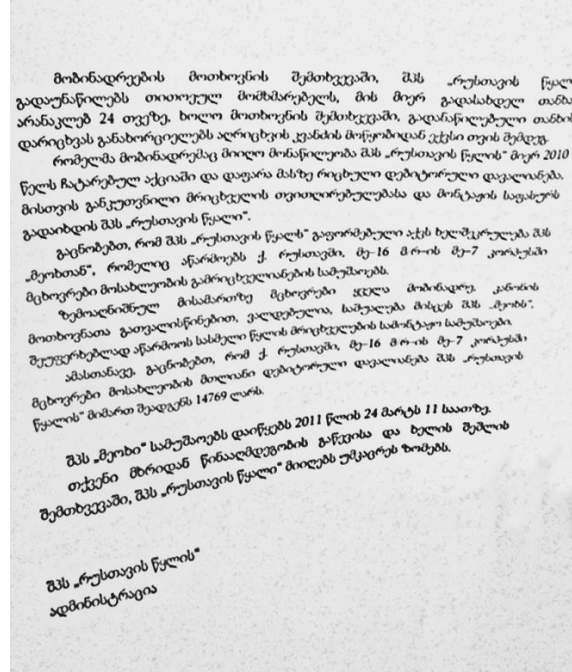 მობინადრეების მოთხოვნის შემთხვევაში, შპს „რუსთავის წყალი
გადაუნაწილებს თითოეულ მომხმარებელს, მის მიერ გადასახდელ თანხა
არანაკლებ 24 თვეზე, ხოლო მოთხოვნის შემთხვევაში, გადანაწილებული თანხის
დარიცხვას განახორციელებს აღრიცხვის კვანძის მოწყობიდან ექვსი თვის შემდეგ.
რომელმა მობინადრემაც მიიღო მონაწილეობა შპს „რუსთავის წყლის“ მიერ 2010
წელს ჩატარებულ აქციაში და დაფარა მასზე რიცხული დებიტორული დავალიანება,
მისთვის განკუთვნილი მრიცხველის თვითღირებულებასა და მონტაჟის საფასურს
გადაიხდის შპს „რუსთავის წყალი“.
გაცნობებთ, რომ შპს „რუსთავის წყალს“ გაფორმებული აქვს ხელშეკრულება შპს
„მეოხთან“, რომელიც აწარმოებს ქ. რუსთავში, მე-16 მ რ-ის მე-7 კორპუსში
მცხოვრები მოსახლეობის გამრიცხველიანების სამუშაოებს.
ზემოაღნიშნულ მისამართზე მცხოვრები ყველა მობინადრე, კანონის
მოთხოვნათა გათვალისწინებით, ვალდებულია, საშუალება მისცეს შპს „მეოხს“,
შეუფერხებლად აწარმოოს სასმელი წყლის მრიცხველების სამონტაჟო სამუშაოები.
ამასთანავე, გაცნობებთ, რომ ქ. რუსთავში, მე-16 მ რ-ის მე-7 კორპუსში
მცხოვრები მოსახლეობის მთლიანი დებიტორული დავალიანება შპს „რუსთავის
წყალის“ მიმართ შეადგენს 14769 ლარს.
შპს „მეოხი“ სამუშაოებს დაიწყებს 2011 წლის 24 მარტს 11 საათზე.
თქვენი მხრიდან წინააღმდეგობის გაწევისა და ხელის შეშლის
შემთხვევაში, შპს „რუსთავის წყალი“ მიიღებს უმკაცრეს ზომებს.
შპს „რუსთავის წყლის“
ადმინისტრაცია